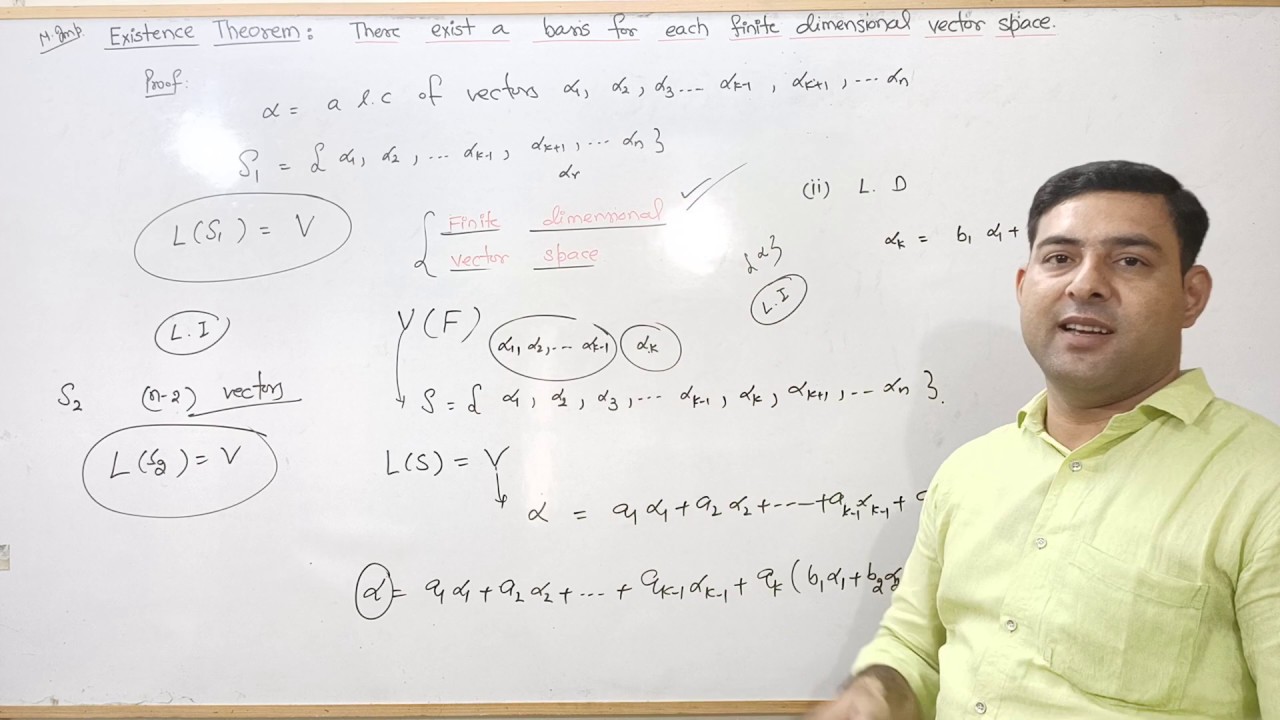 M. Imp. Existence Theorem: There exist a basis for each finite dimensional vector space.
Proof:
α = a l.c of vectors α₁, α₂, α₃ ... αₖ₋₁, αₖ₊₁, ... αₙ
S₁ = { α₁, α₂, ... αₖ₋₁, αₖ₊₁, ... αₙ }
αᵣ
(ii) L. D
L(S₁) = V
{ Finite dimensional
vector space
αₖ = b₁ α₁ +
{α}
L.I
L.I
V(F)
α₁, α₂, ... αₖ₋₁
αₖ
S₂ (n-2) vectors
S = { α₁, α₂, α₃, ... αₖ₋₁, αₖ, αₖ₊₁, ... αₙ }.
L(S₂) = V
L(S) = V
α = a₁ α₁ + a₂ α₂ + ---- + aₖ₋₁ αₖ₋₁ +
α = a₁ α₁ + a₂ α₂ + ... + aₖ₋₁ αₖ₋₁ + aₖ ( b₁ α₁ + b₂ α₂